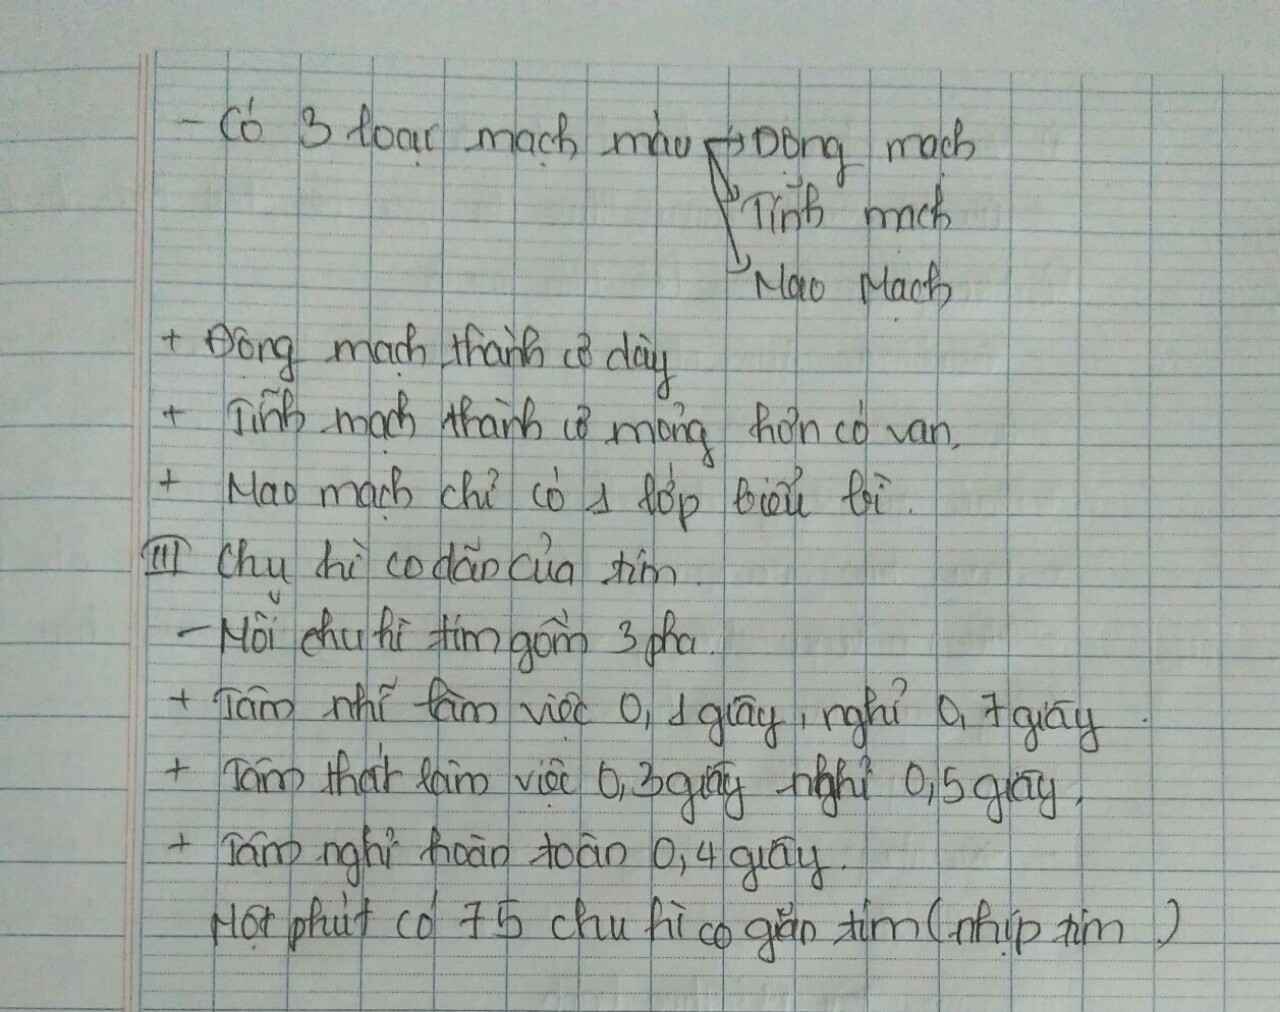 - Có 3 loại mạch máu → Động mạch
Tĩnh mạch
Mao Mạch
+ Động mạch thành cơ dày
+ Tĩnh mạch thành cơ mỏng hơn có van,
+ Mao mạch chỉ có 1 lớp biểu bì.
III Chu kì co dãn của tim.
- Mỗi chu kì tim gồm 3 pha.
+ Tâm nhĩ làm việc 0,1 giây, nghỉ 0,7 giây.
+ Tâm thất làm việc 0,3 giây nghỉ 0,5 giây,
+ Tâm nghỉ hoàn toàn 0,4 giây.
Một phút có 75 chu kì co giãn tim (nhịp tim)